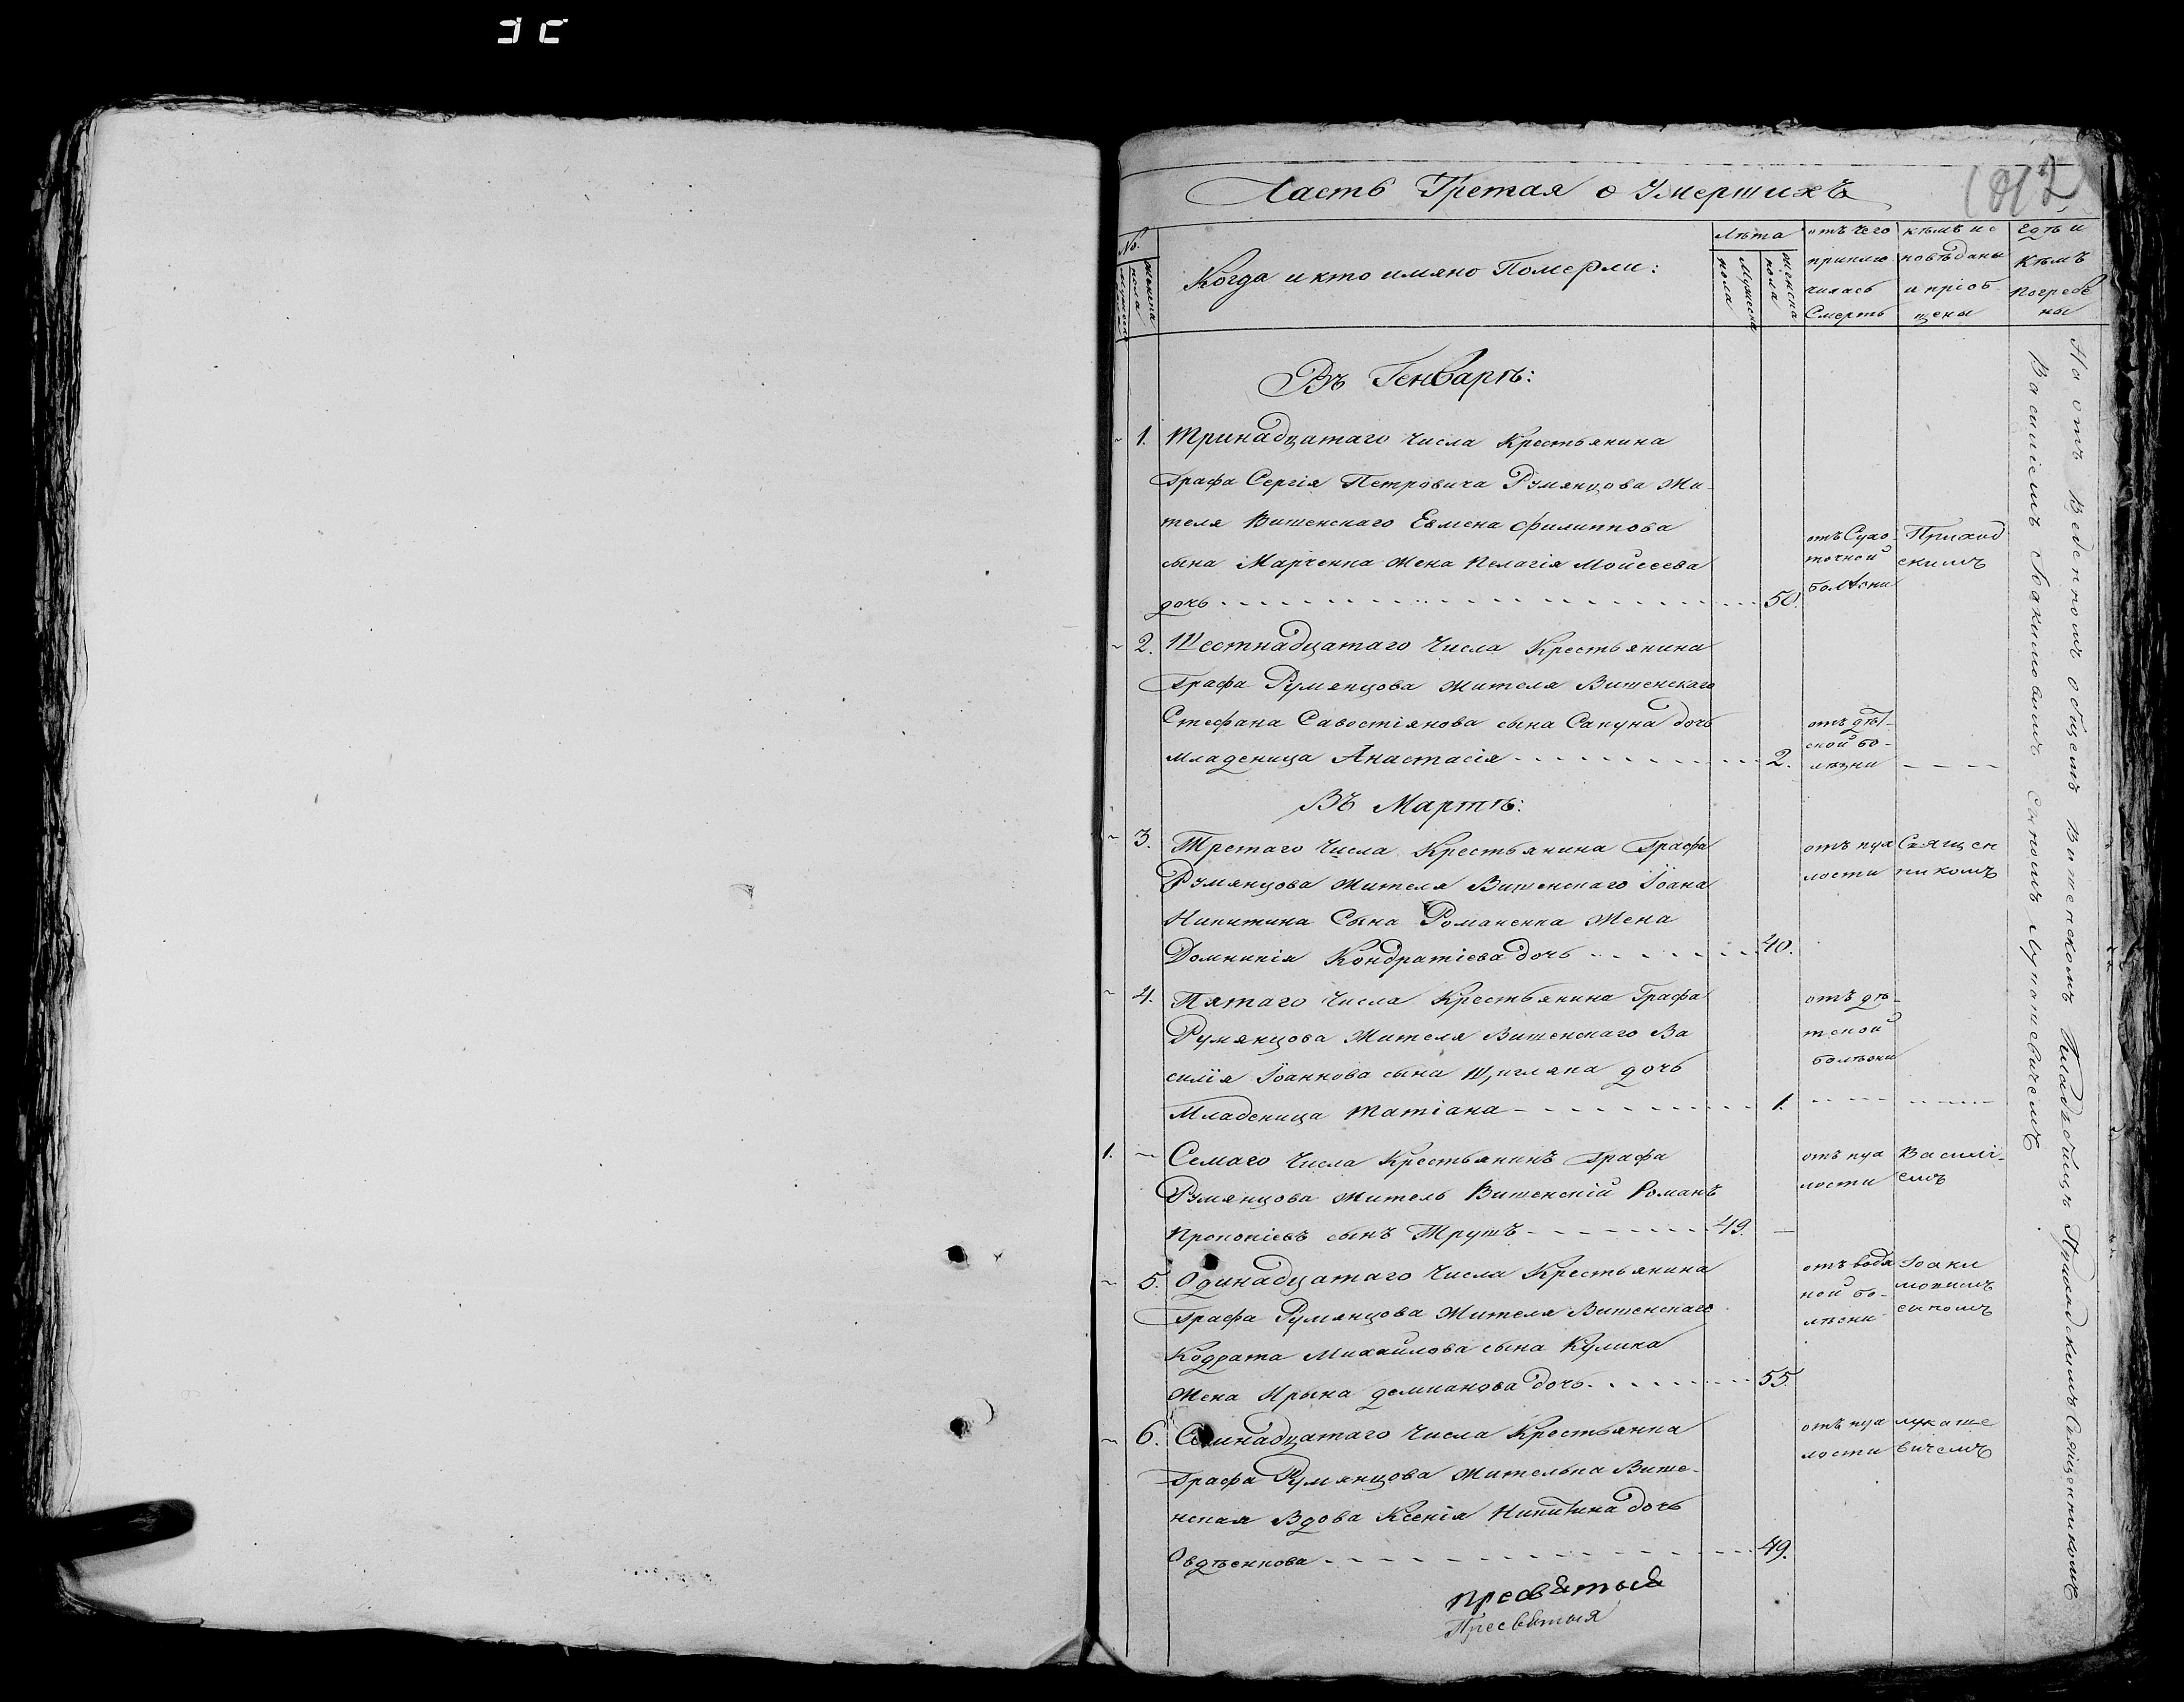 Часть Третая о Умершихъ
No.
Когда и кто имяно Померли:
Лѣта
Мужеска пола
Женска пола
отъ чего
приклю
чилась
Смерть
кѣмъ ис
повѣданы
и пріоб
щены
гдѣ и
кѣмъ
погребе
ны
Въ Генварѣ:
1. Тринадцатаго числа Крестьянина
Графа Сергія Петровича Румянцова Жи-
теля Вишенскаго Евмена Филиппова
сына Марченка Жена Пелагія Мойсеева
дочь 50.
отъ Сухо-
точной
болѣсни
Приход
скимъ
2. Шестнадцатаго Числа Крестьянина
Графа Румянцова Жителя Вишенскаго
Стефана Савостіянова сына Сапуна дочь
младеница Анастасія 2.
отъ дѣт-
ской бо-
лѣзни
Въ Мартѣ:
3. Третаго Числа Крестьянина Графа
Румянцова Жителя Вишенскаго Іоана
Никитина Сына Романенка Жена
Домникія Кондратіева дочь 40.
отъ пуа
лости
Священ
никомъ
4. Пятаго Числа Крестьянина Графа
Румянцова Жителя Вишенскаго Ва
силія Іоаннова сына дочь
Младеница Татіана 1.
отъ дѣ-
тской
болѣзни
1. Семаго Числа Крестьянинъ Графа
Румянцова житель Вишенскій Романъ
Прокопіевъ сынъ Трушъ 49.
отъ пуа
лости
Василі-
емъ
5. Одинадцатаго Числа Крестьянина
Графа Румянцова Жителя Вишенскаго
Кодрата Михайлова сына Кулика
Жена Ирына демианова дочь 55.
отъ водя
ной бо-
лѣсни
Іоаки
мовимъ
сыномъ
6. Семинадцатаго Числа Крестьянка
Графа Румянцова Жителька Више-
нская Вдова Ксенія Никитина дочь
49.
отъ пуа
лости
лукаше
вичемъ
На отъ веденномъ общемъ Вишенскомъ Кладбищѣ Приходскимъ Священникомъ
Василіемъ Іоакимовимъ сыномъ Лукашевичемъ
Пресвятыя
Пресвятыя